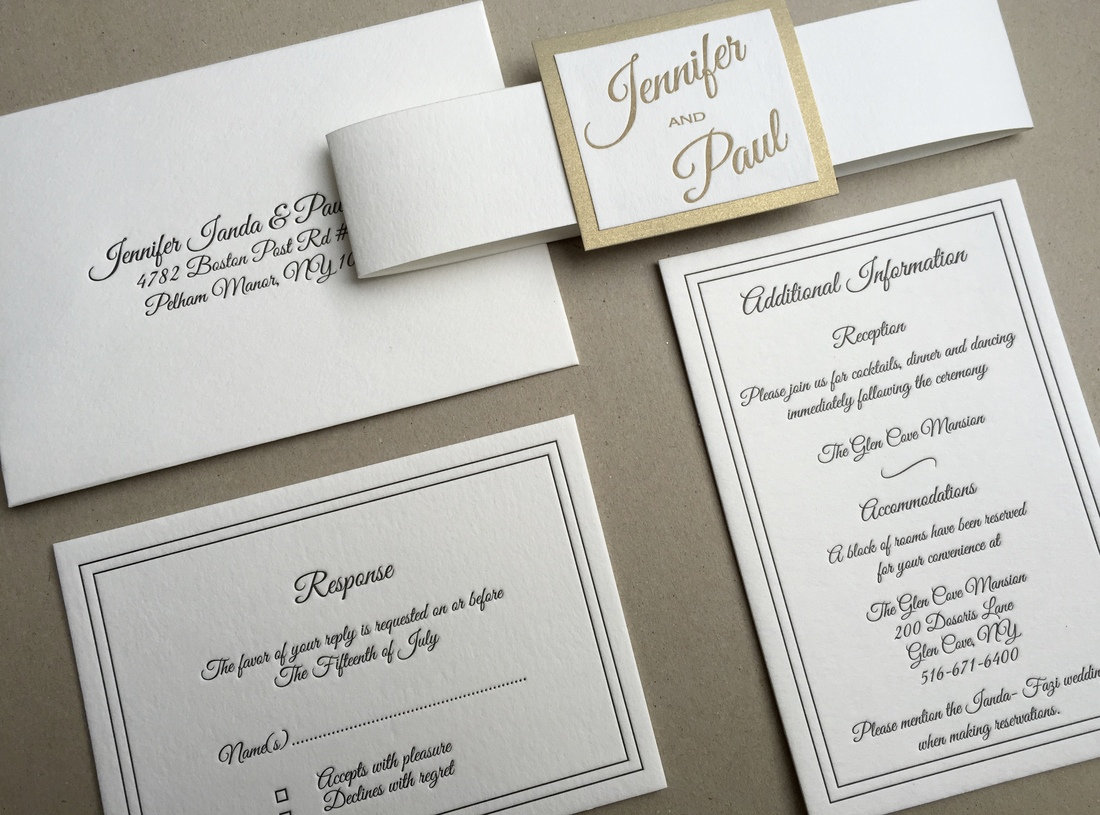 Jennifer
AND
Paul
Jennifer Janda &
4782 Boston Post Rd #
Pelham Manor, NY
Additional Information
Reception
Please join us for cocktails, dinner and dancing
immediately following the ceremony
The Glen Cove Mansion
Accommodations
A block of rooms have been reserved
for your convenience at
The Glen Cove Mansion
200 Dosoris Lane
Glen Cove, NY
516-671-6400
Please mention the Janda- Fazi
when making reservations.
Response
The favor of your reply is requested on or before
The Fifteenth of July
Name(s)
Accepts with pleasure
Declines with regret